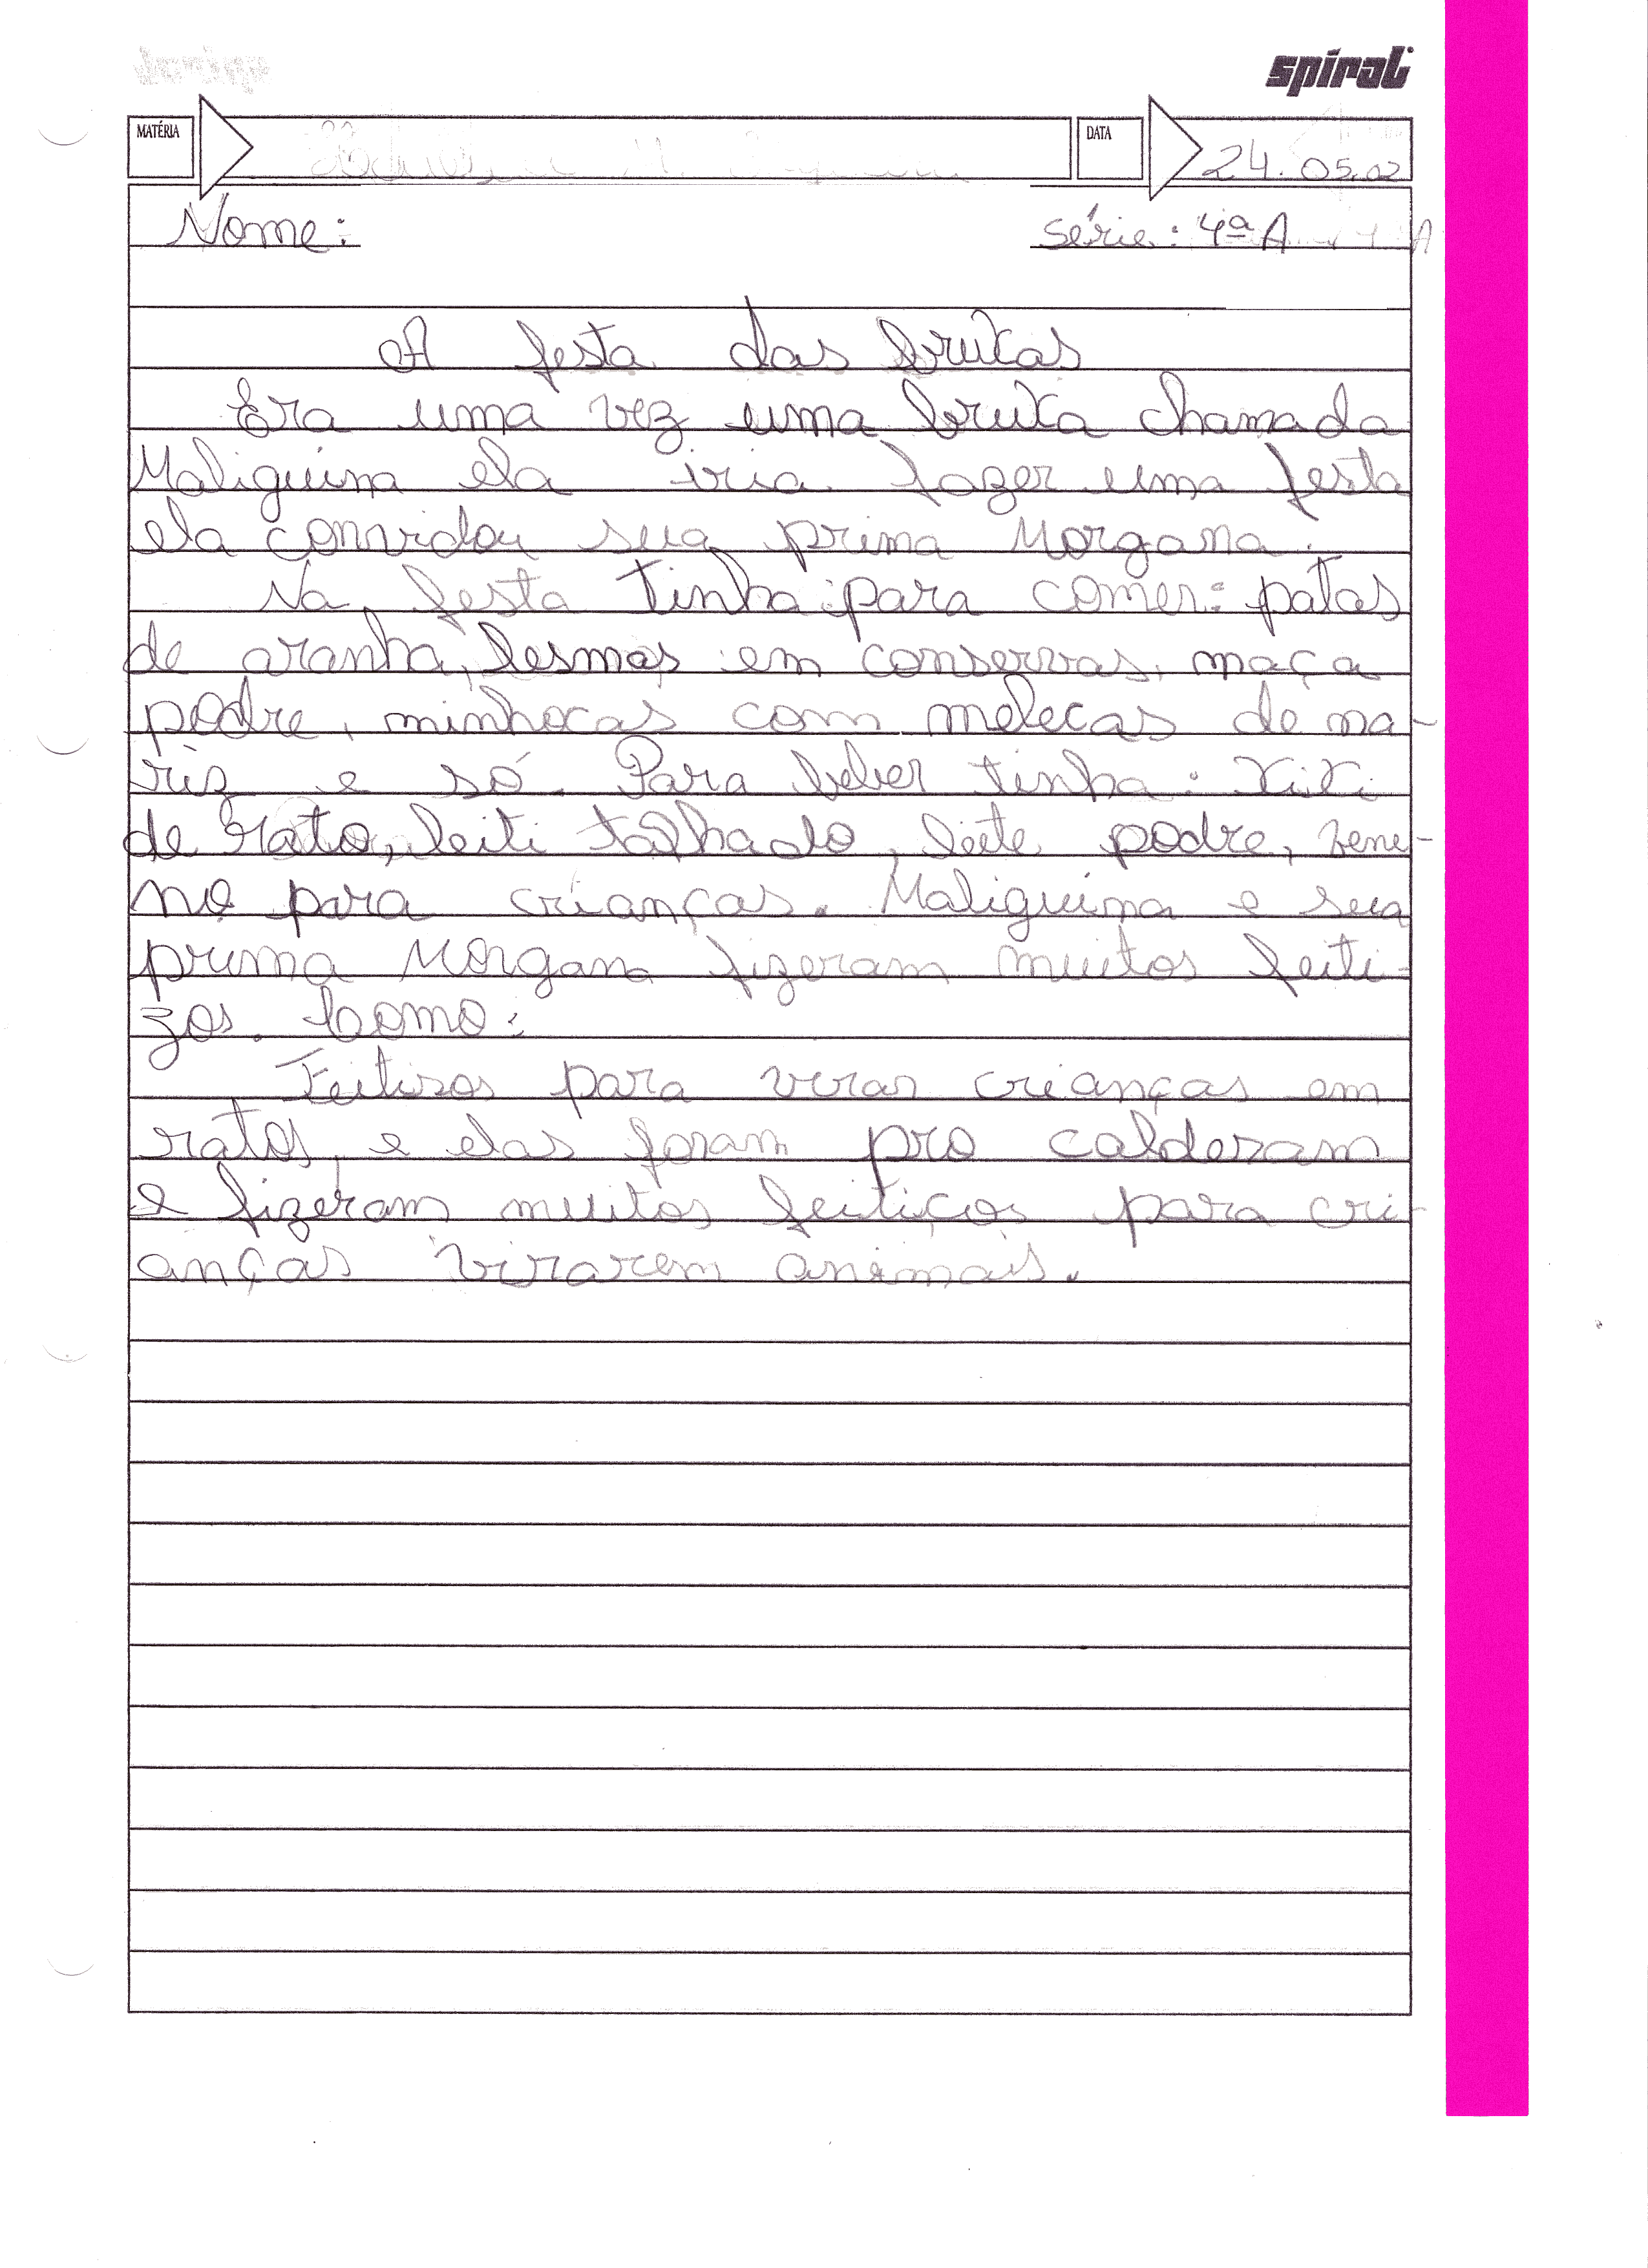 spiral
MATÉRIA
DATA
24.05.02
Nome:
série: 4ª A
A festa das bruxas
Era uma vez uma bruxa chamada
Maliguina ela iria fazer uma festa
ela convidou sua prima Morgana.
Na festa tinha para comer: patas
de aranha, lesmas em conservas, maça
podre, minhocas com melecas de na-
riz e só. Para beber tinha: xixi
de rato, leiti talhado, leite podre, vene-
no para crianças. Maliguina e sua
prima Morgana fizeram muitos feiti-
zos. Como:
Feitisos para virar crianças em
ratos, e elas foram pro calderam
e fizeram muitos feitiços para cri-
anças virarem animais.